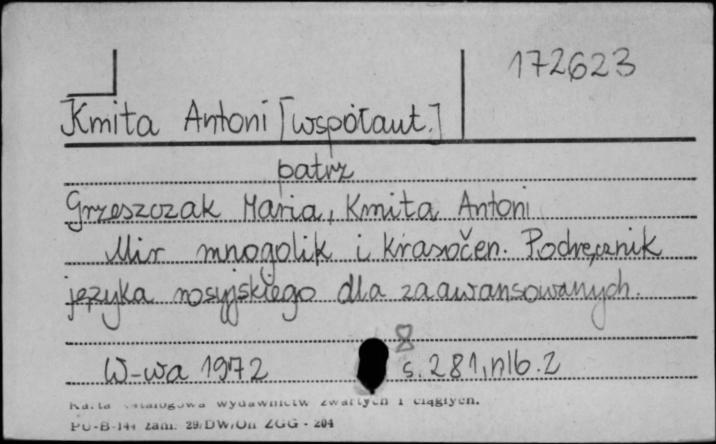 172623
Kmita Antoni [współaut.]
patrz
Grzeszczak Maria, Kmita Antoni
Mir mnogolik i krasočen. Podręcznik
języka rosyjskiego dla zaawansowanych.
8
W-wa 1972 s. 281, nlb. 2
Karta katalogowa wydawnictw zwartych i ciągłych.
PU-B-144 zam. 29/DW/On ZGG - 204